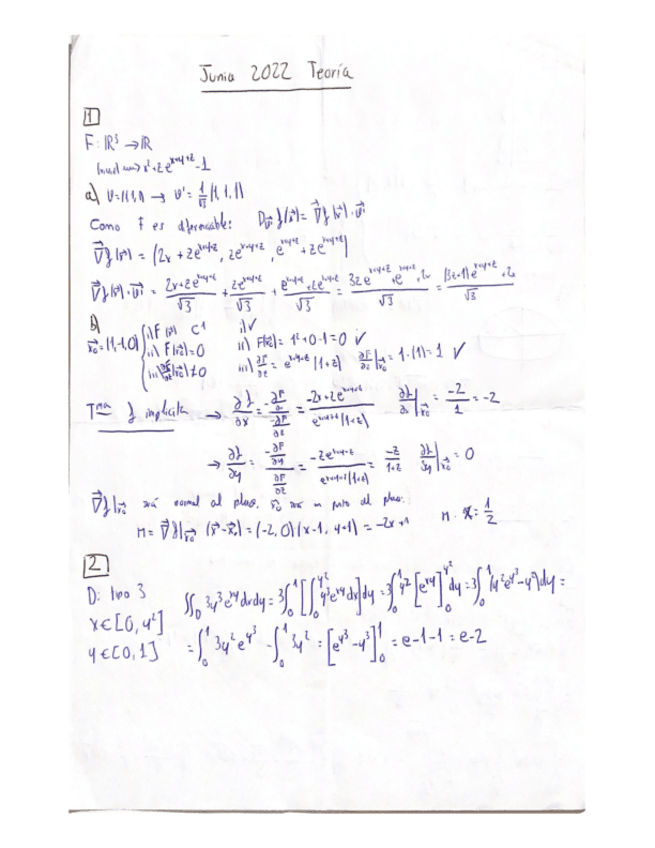 Junio 2022 Teoría
1
F: ℝ³ → ℝ
x²+ze^{x+y+z}-1
a) v=(1,1,1) → v' = 1/√3 (1,1,1)
Como f es diferenciable: D_{v'} f(x⃗) = ∇⃗f(x⃗)·v⃗'
∇⃗f(x⃗) = (2x + ze^{x+y+z}, ze^{x+y+z}, e^{x+y+z} + ze^{x+y+z})
∇⃗f(x⃗)·v⃗' = (2x+ze^{x+y+z})/√3 + ze^{x+y+z}/√3 + (e^{x+y+z}+ze^{x+y+z})/√3 = (3ze^{x+y+z}+e^{x+y+z}+2x)/√3 = ((3z+1)e^{x+y+z}+2x)/√3
b)
x⃗₀=(1,-1,0) i) F C¹ i) ✓
ii) F(x⃗₀)=0 ii) F(x⃗₀)= 1²+0-1=0 ✓
iii) ∂F/∂z(x⃗₀)≠0 iii) ∂F/∂z = e^{x+y+z}(1+z) ∂F/∂z|x⃗₀ = 1·(1)=1 ✓
T^{ma} f implícita → ∂f/∂x = (-∂F/∂x)/(∂F/∂z) = (-2x+ze^{x+y+z})/(e^{x+y+z}(1+z)) ∂f/∂x|x⃗₀ = -2/1 = -2
→ ∂f/∂y = (-∂F/∂y)/(∂F/∂z) = -ze^{x+y+z}/(e^{x+y+z}(1+z)) = -z/(1+z) ∂f/∂y|x⃗₀ = 0
∇⃗f|x⃗₀ será normal al plano. x⃗₀ será un punto del plano.
π = ∇⃗f|x⃗₀ (x⃗-x⃗₀) = (-2,0)(x-1, y+1) = -2x+1 π: x = 1/2
2
D: tipo 3
x∈[0,y²]
y∈[0,1]
∬_D 3y³e^{xy}dxdy = 3∫₀¹[∫₀^{y²} y³e^{xy}dx]dy = 3∫₀¹ y²[e^{xy}]₀^{y²} dy = 3∫₀¹(y²e^{y³}-y²)dy =
= ∫₀¹ 3y²e^{y³} - ∫₀¹ 3y² = [e^{y³}-y³]₀¹ = e-1-1 = e-2